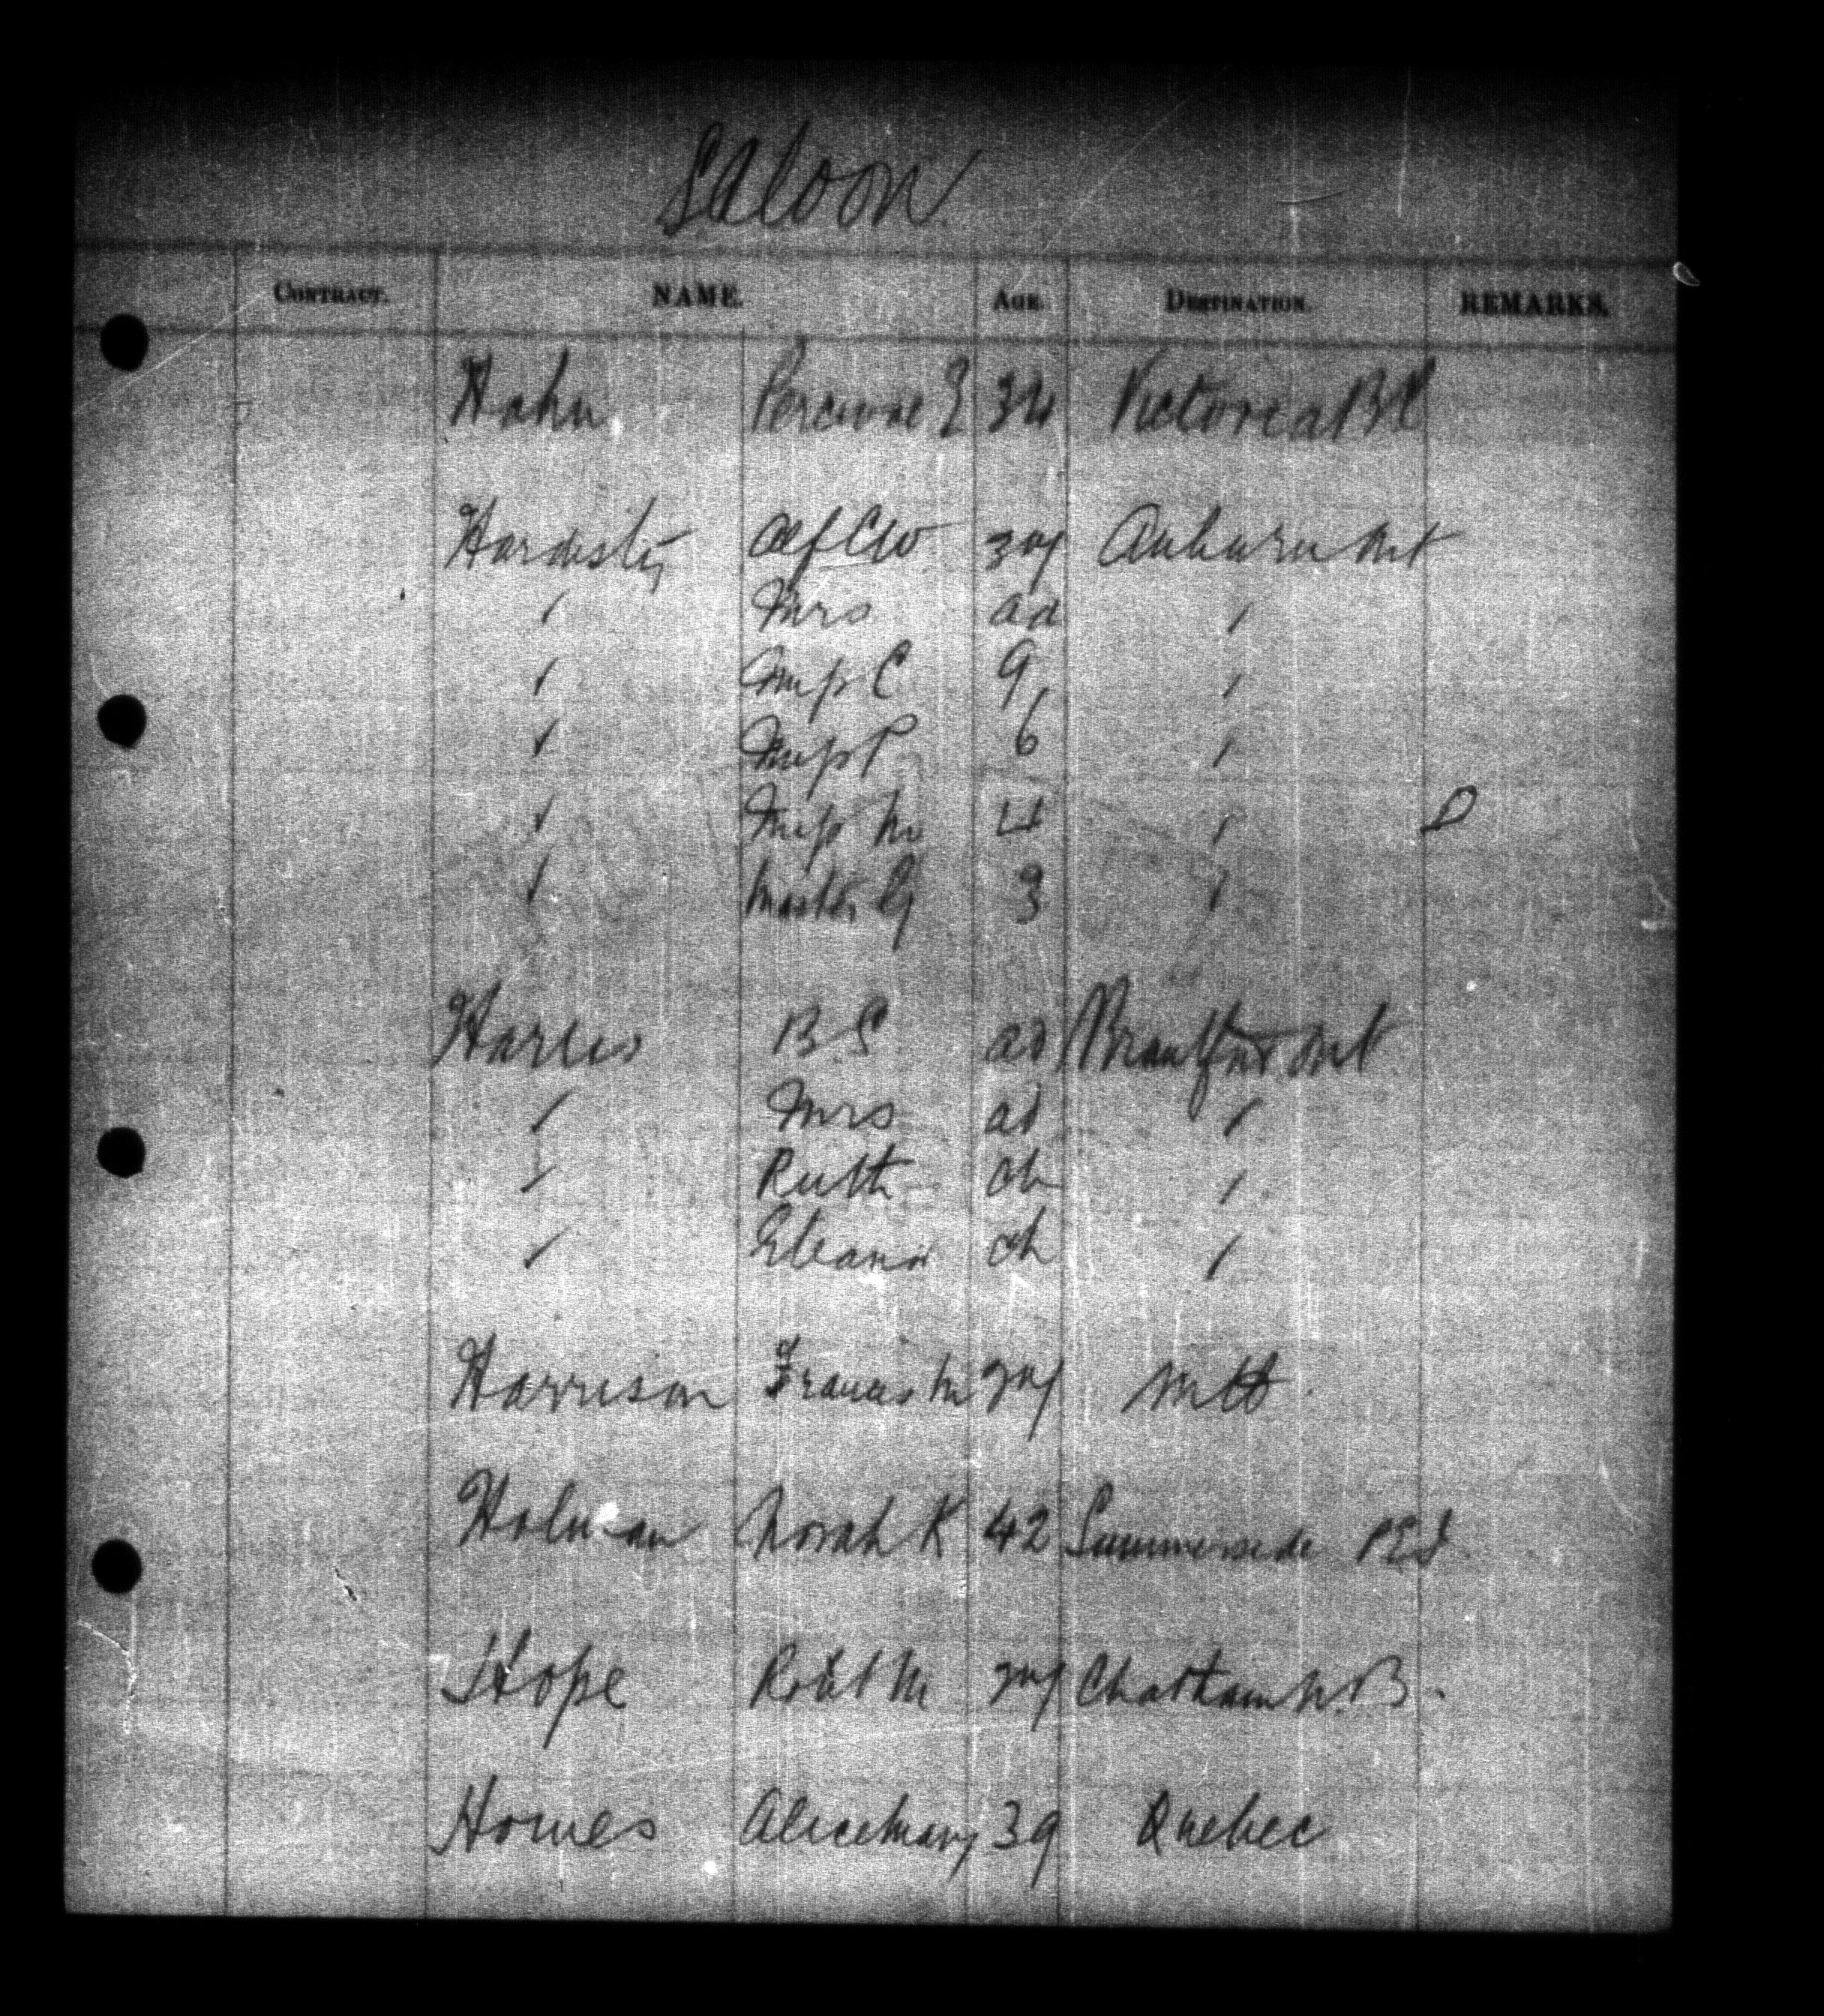 Saloon
CONTRACT. NAME. AGE. DESTINATION. REMARKS.
Hahn 34 Victoria BC
Hardisty Alf CW Auburn Ont
" Mrs ad "
" Miss C 9 "
" Miss P 6 "
" Miss M 4 "
" Master G 3 "
Harris B. S ad Brantford Ont
" Mrs ad "
" Ruth ch "
" Eleanor ch "
Harrison Francis M
Holman Norah K 42 Summerside PEI
Hope Robt M Chatham N.B.
Homes Alice Mary 39 Quebec